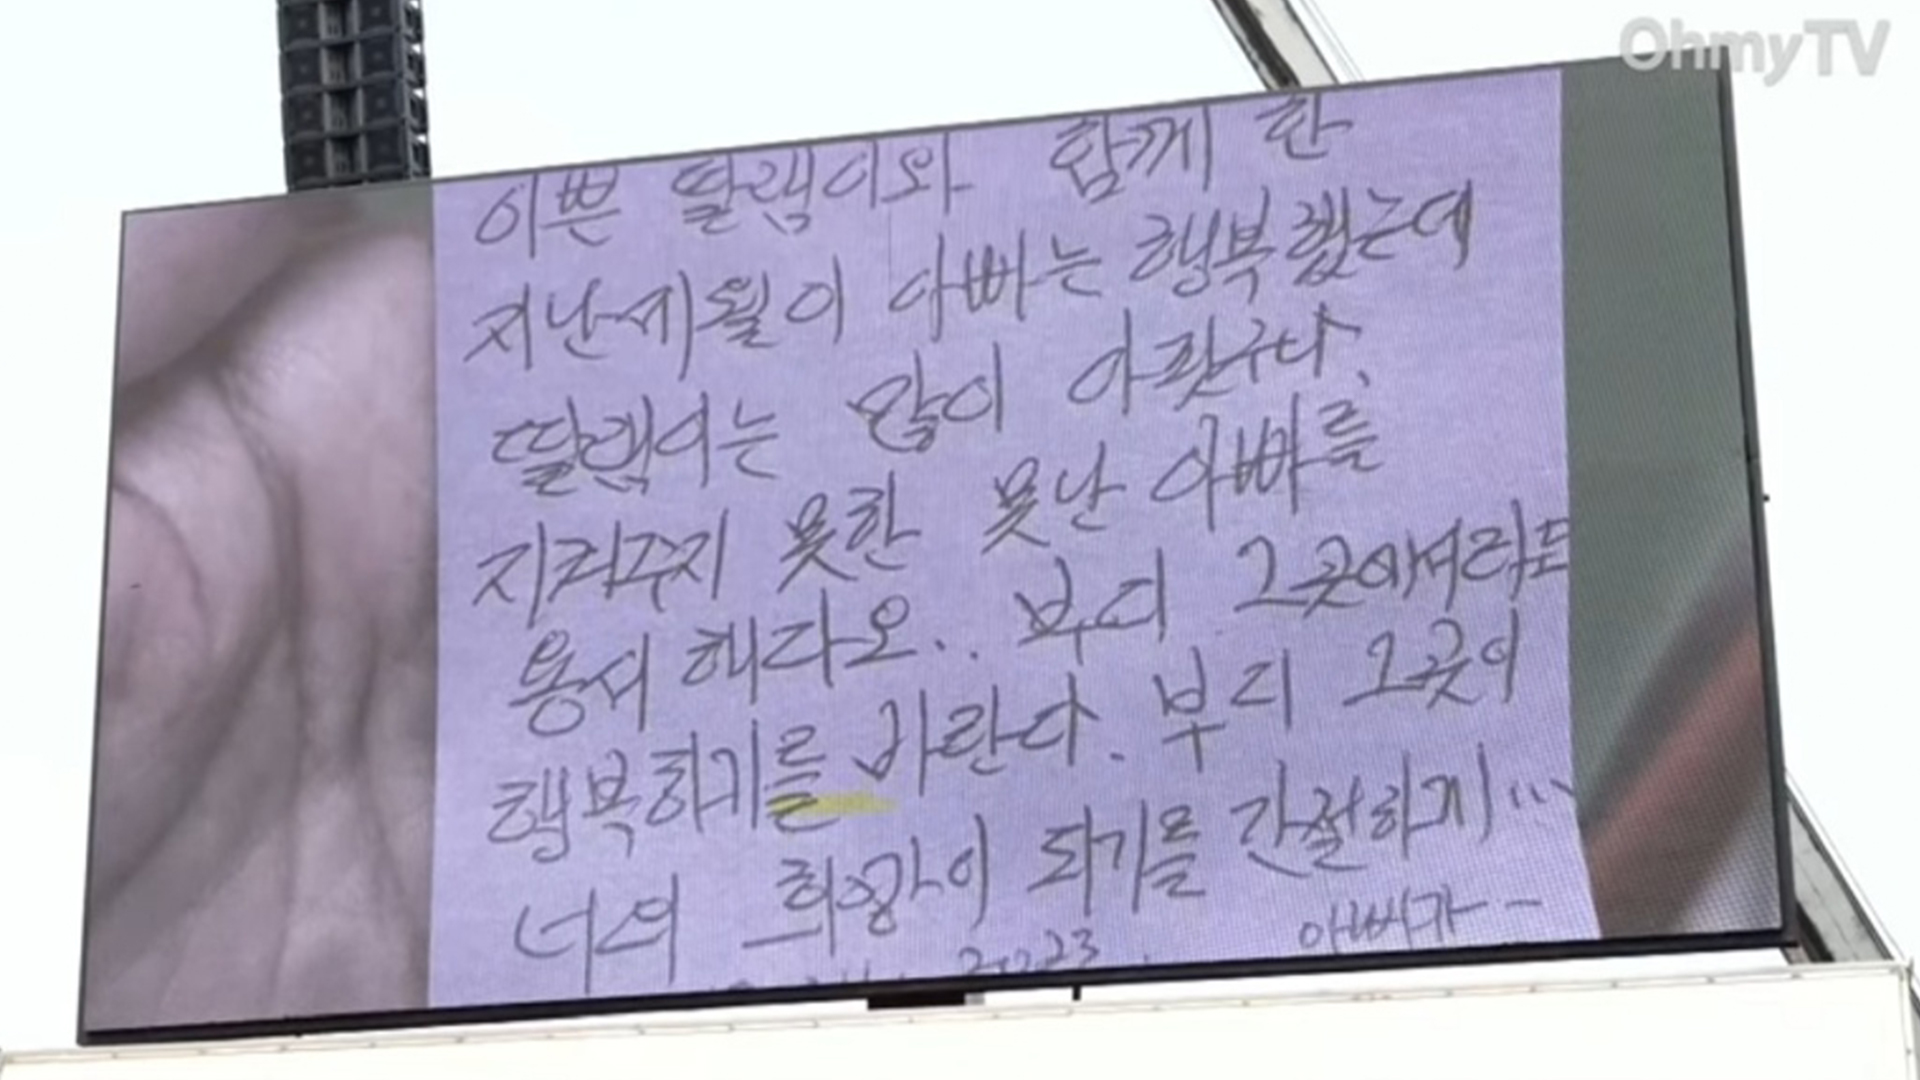 OhmyTV
이쁜 딸램이와 함께 한
지난세월이 아빠는 행복했는데
딸램이는 많이 아팠구나.
지켜주지 못한 못난 아빠를
용서해다오.. 부디 그곳에서라도
행복하기를 바란다. 부디 그곳이
너의 희망이 되기를 간절하게...
2023. 아빠가--